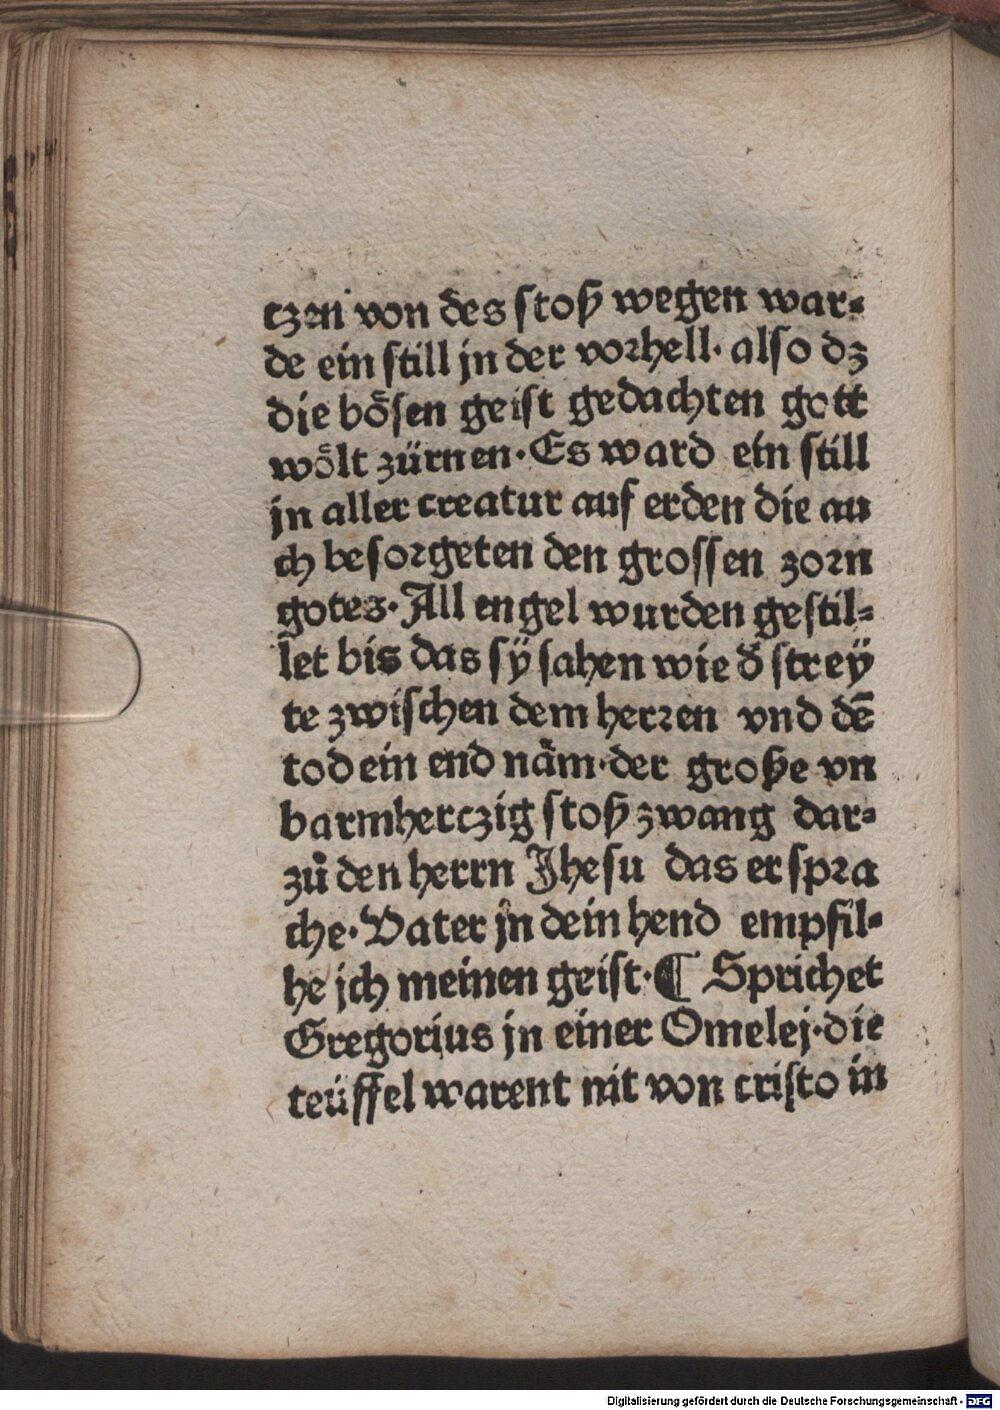 czen von des stoß wegen war⸗
de ein still jn der vorhell· also dz
die bo̊sen geist gedachten gott
wo̊lt zürnen· Es ward ein still
jn aller creatur auf erden die au
ch besorgeten den grossen zorn
gotes· All engel wurden gestil⸗
let bis das sÿ sahen wie d̕ streÿ
te zwischen dem herren vnd dē
tod ein end nåm· der große vn
barmherczig stoß zwang dar⸗
zů den herrn Jhesu das er spra
che· Vater jn dein hend empfil⸗
he jch meinen geist· ¶ Sprichet
Gregorius jn einer Omelej· die
teüffel warent nit von cristo in
Digitalisierung gefördert durch die Deutsche Forschungsgemeinschaft - DFG